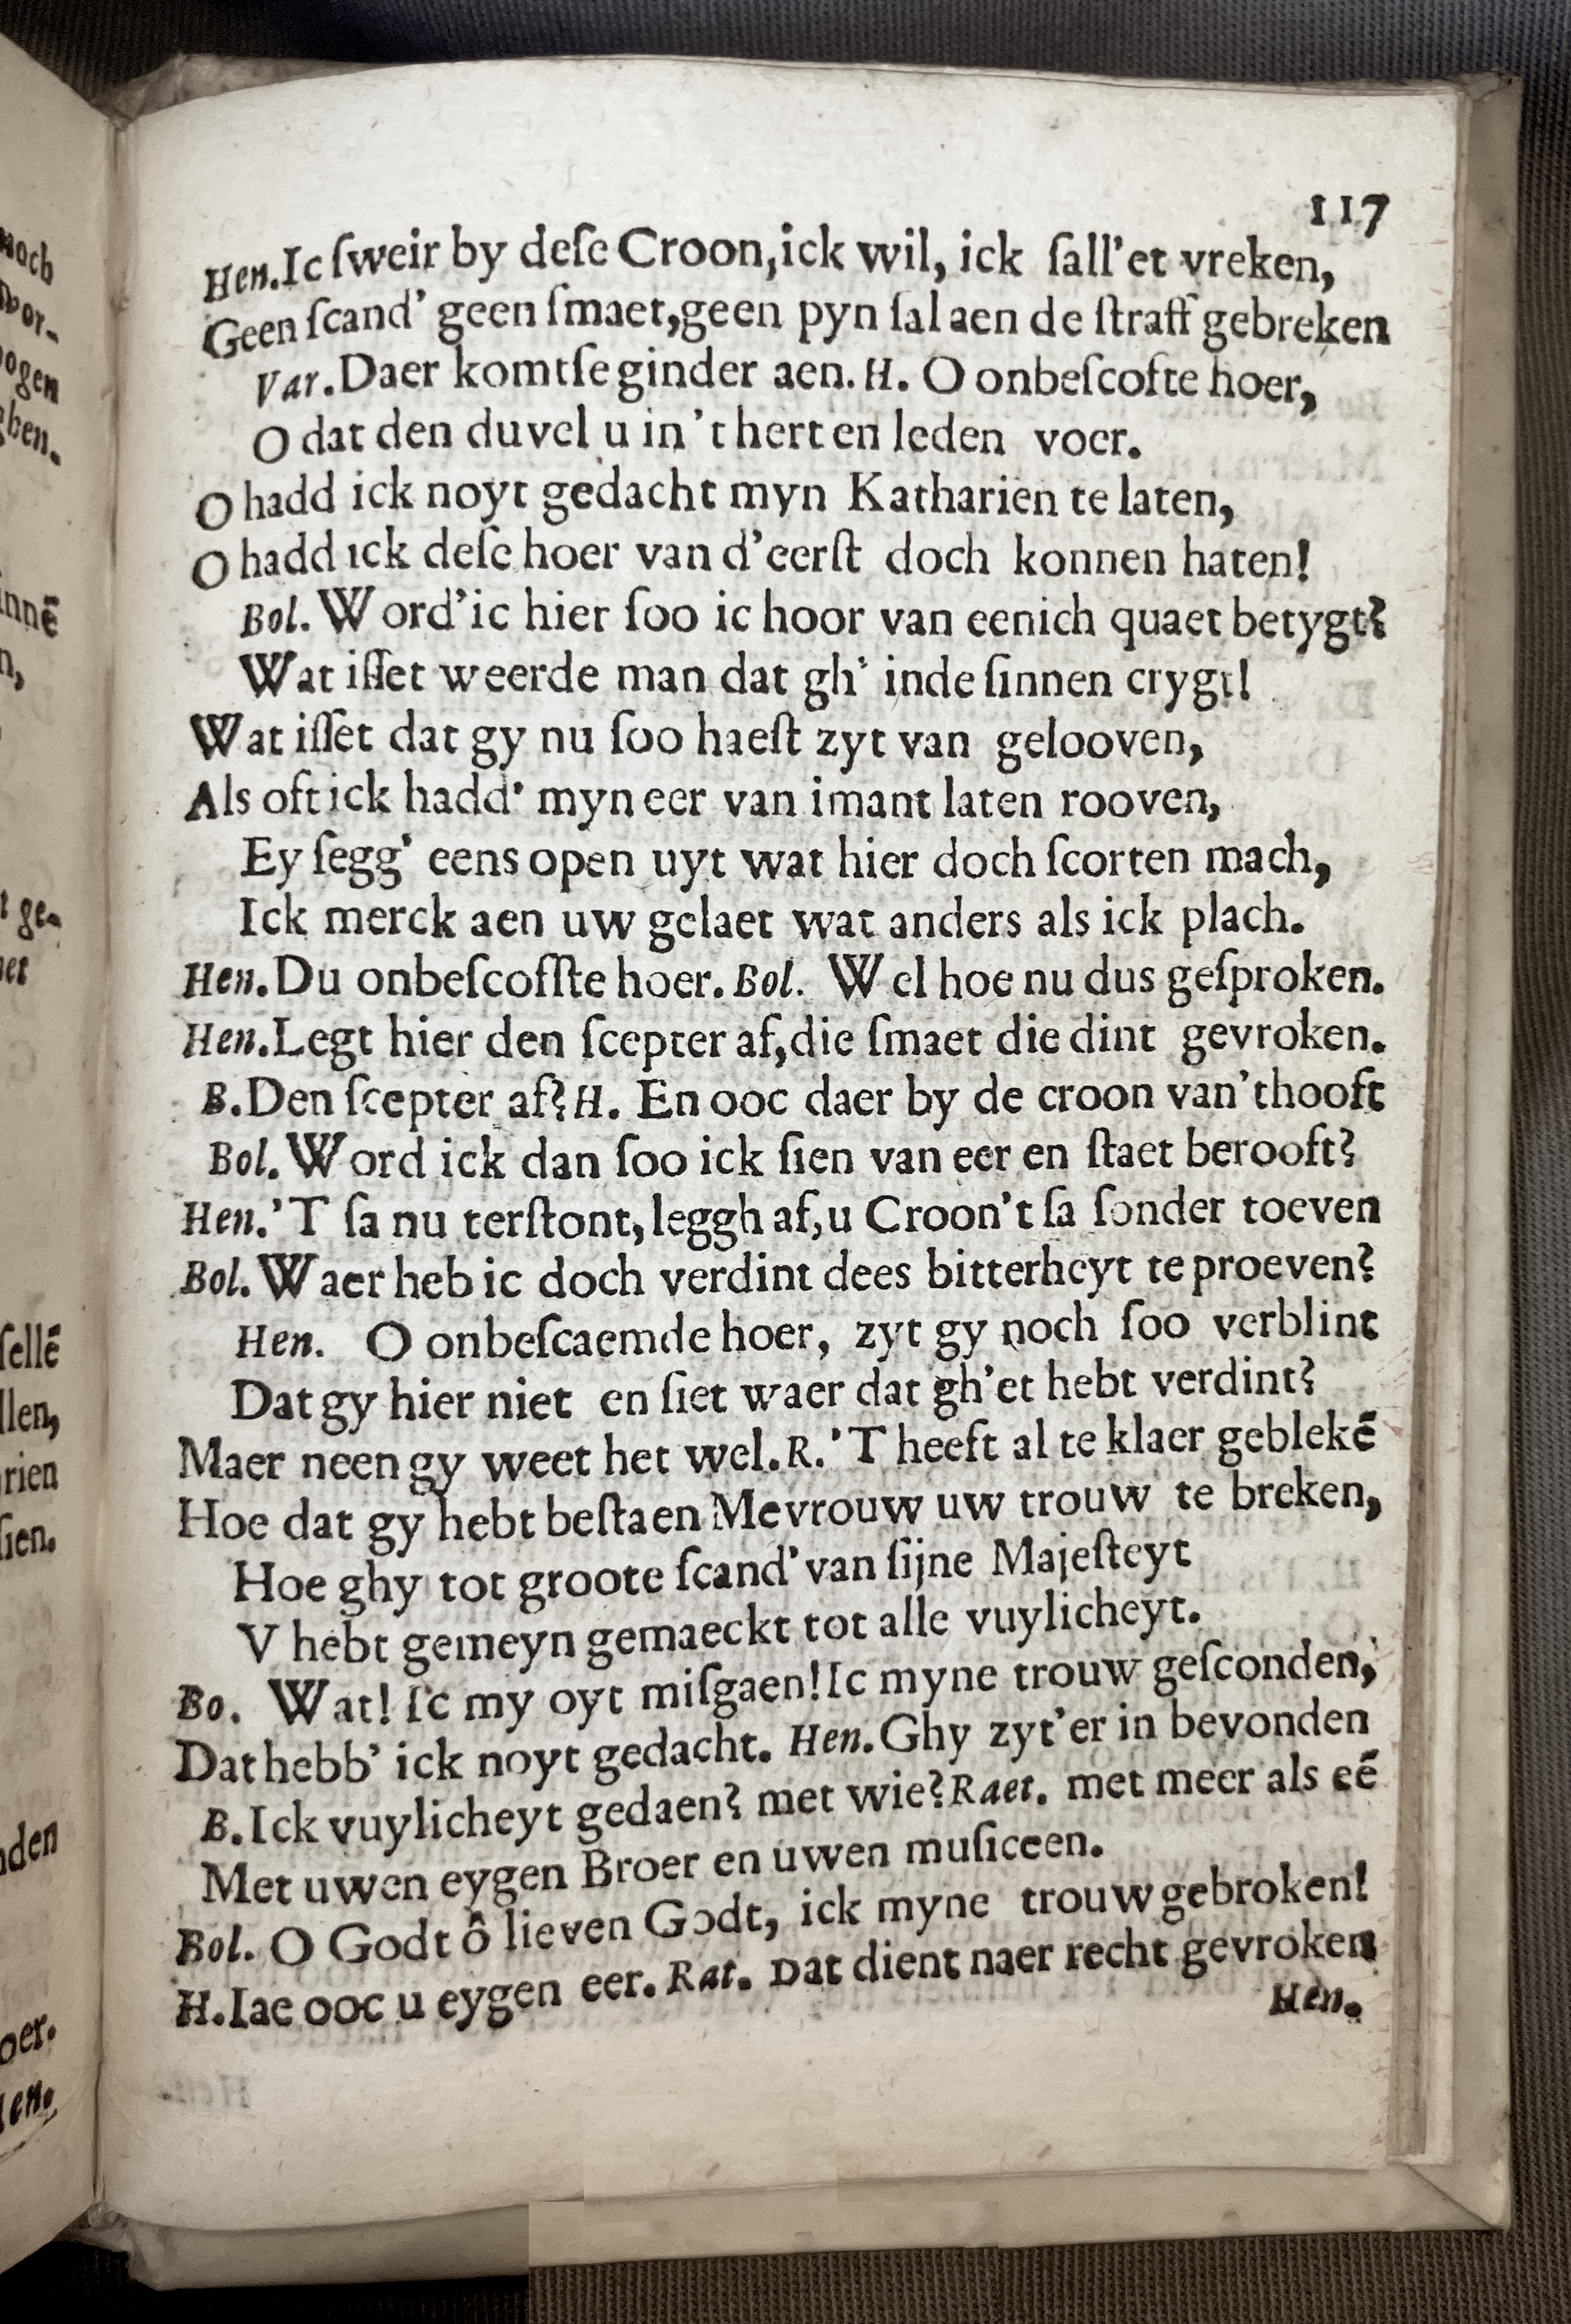 117
Hen. Ic ſweir by deſe Croon, ick wil, ick ſall'et vreken,
Geen ſcand' geen ſmaet, geen pyn ſal aen de ſtraff gebreken
Var. Daer komtſe ginder aen. H. O onbeſcofte hoer,
O dat den duvel u in 't hert en leden voer.
O hadd ick noyt gedacht myn Katharien te laten,
O hadd ick deſe hoer van d'eerſt doch konnen haten!
Bol. Word'ic hier ſoo ic hoor van eenich quaet betygt?
Wat iſſet weerde man dat gh' inde ſinnen crygt!
Wat iſſet dat gy nu ſoo haeſt zyt van gelooven,
Als oft ick hadd' myn eer van imant laten rooven,
Ey ſegg' eens open uyt wat hier doch ſcorten mach,
Ick merck aen uw gelaet wat anders als ick plach.
Hen. Du onbeſcofſte hoer. Bol. Wel hoe nu dus geſproken.
Hen. Legt hier den ſcepter af, die ſmaet die dint gevroken.
B. Den ſcepter af? H. En ooc daer by de croon van 't hooft
Bol. Word ick dan ſoo ick ſien van eer en ſtaet berooft?
Hen. 'T ſa nu terſtont, leggh af, u Croon 't ſa ſonder toeven
Bol. Waer heb ic doch verdint dees bitterheyt te proeven?
Hen. O onbeſcaemde hoer, zyt gy noch ſoo verblint
Dat gy hier niet en ſiet waer dat gh'et hebt verdint?
Maer neen gy weet het wel. R. 'T heeft al te klaer geblekē
Hoe dat gy hebt beſtaen Mevrouw uw trouw te breken,
Hoe ghy tot groote ſcand' van ſijne Majeſteyt
V hebt gemeyn gemaeckt tot alle vuylicheyt.
Bo. Wat! Ic my oyt miſgaen! Ic myne trouw geſconden,
Dat hebb' ick noyt gedacht. Hen. Ghy zyt'er in bevonden
B. Ick vuylicheyt gedaen? met wie? Raet. met meer als eē
Met uwen eygen Broer en uwen muſiceen.
Bol. O Godt ô lieven Godt, ick myne trouw gebroken!
H. Iae ooc u eygen eer. Rat. Dat dient naer recht gevroken
Hen.